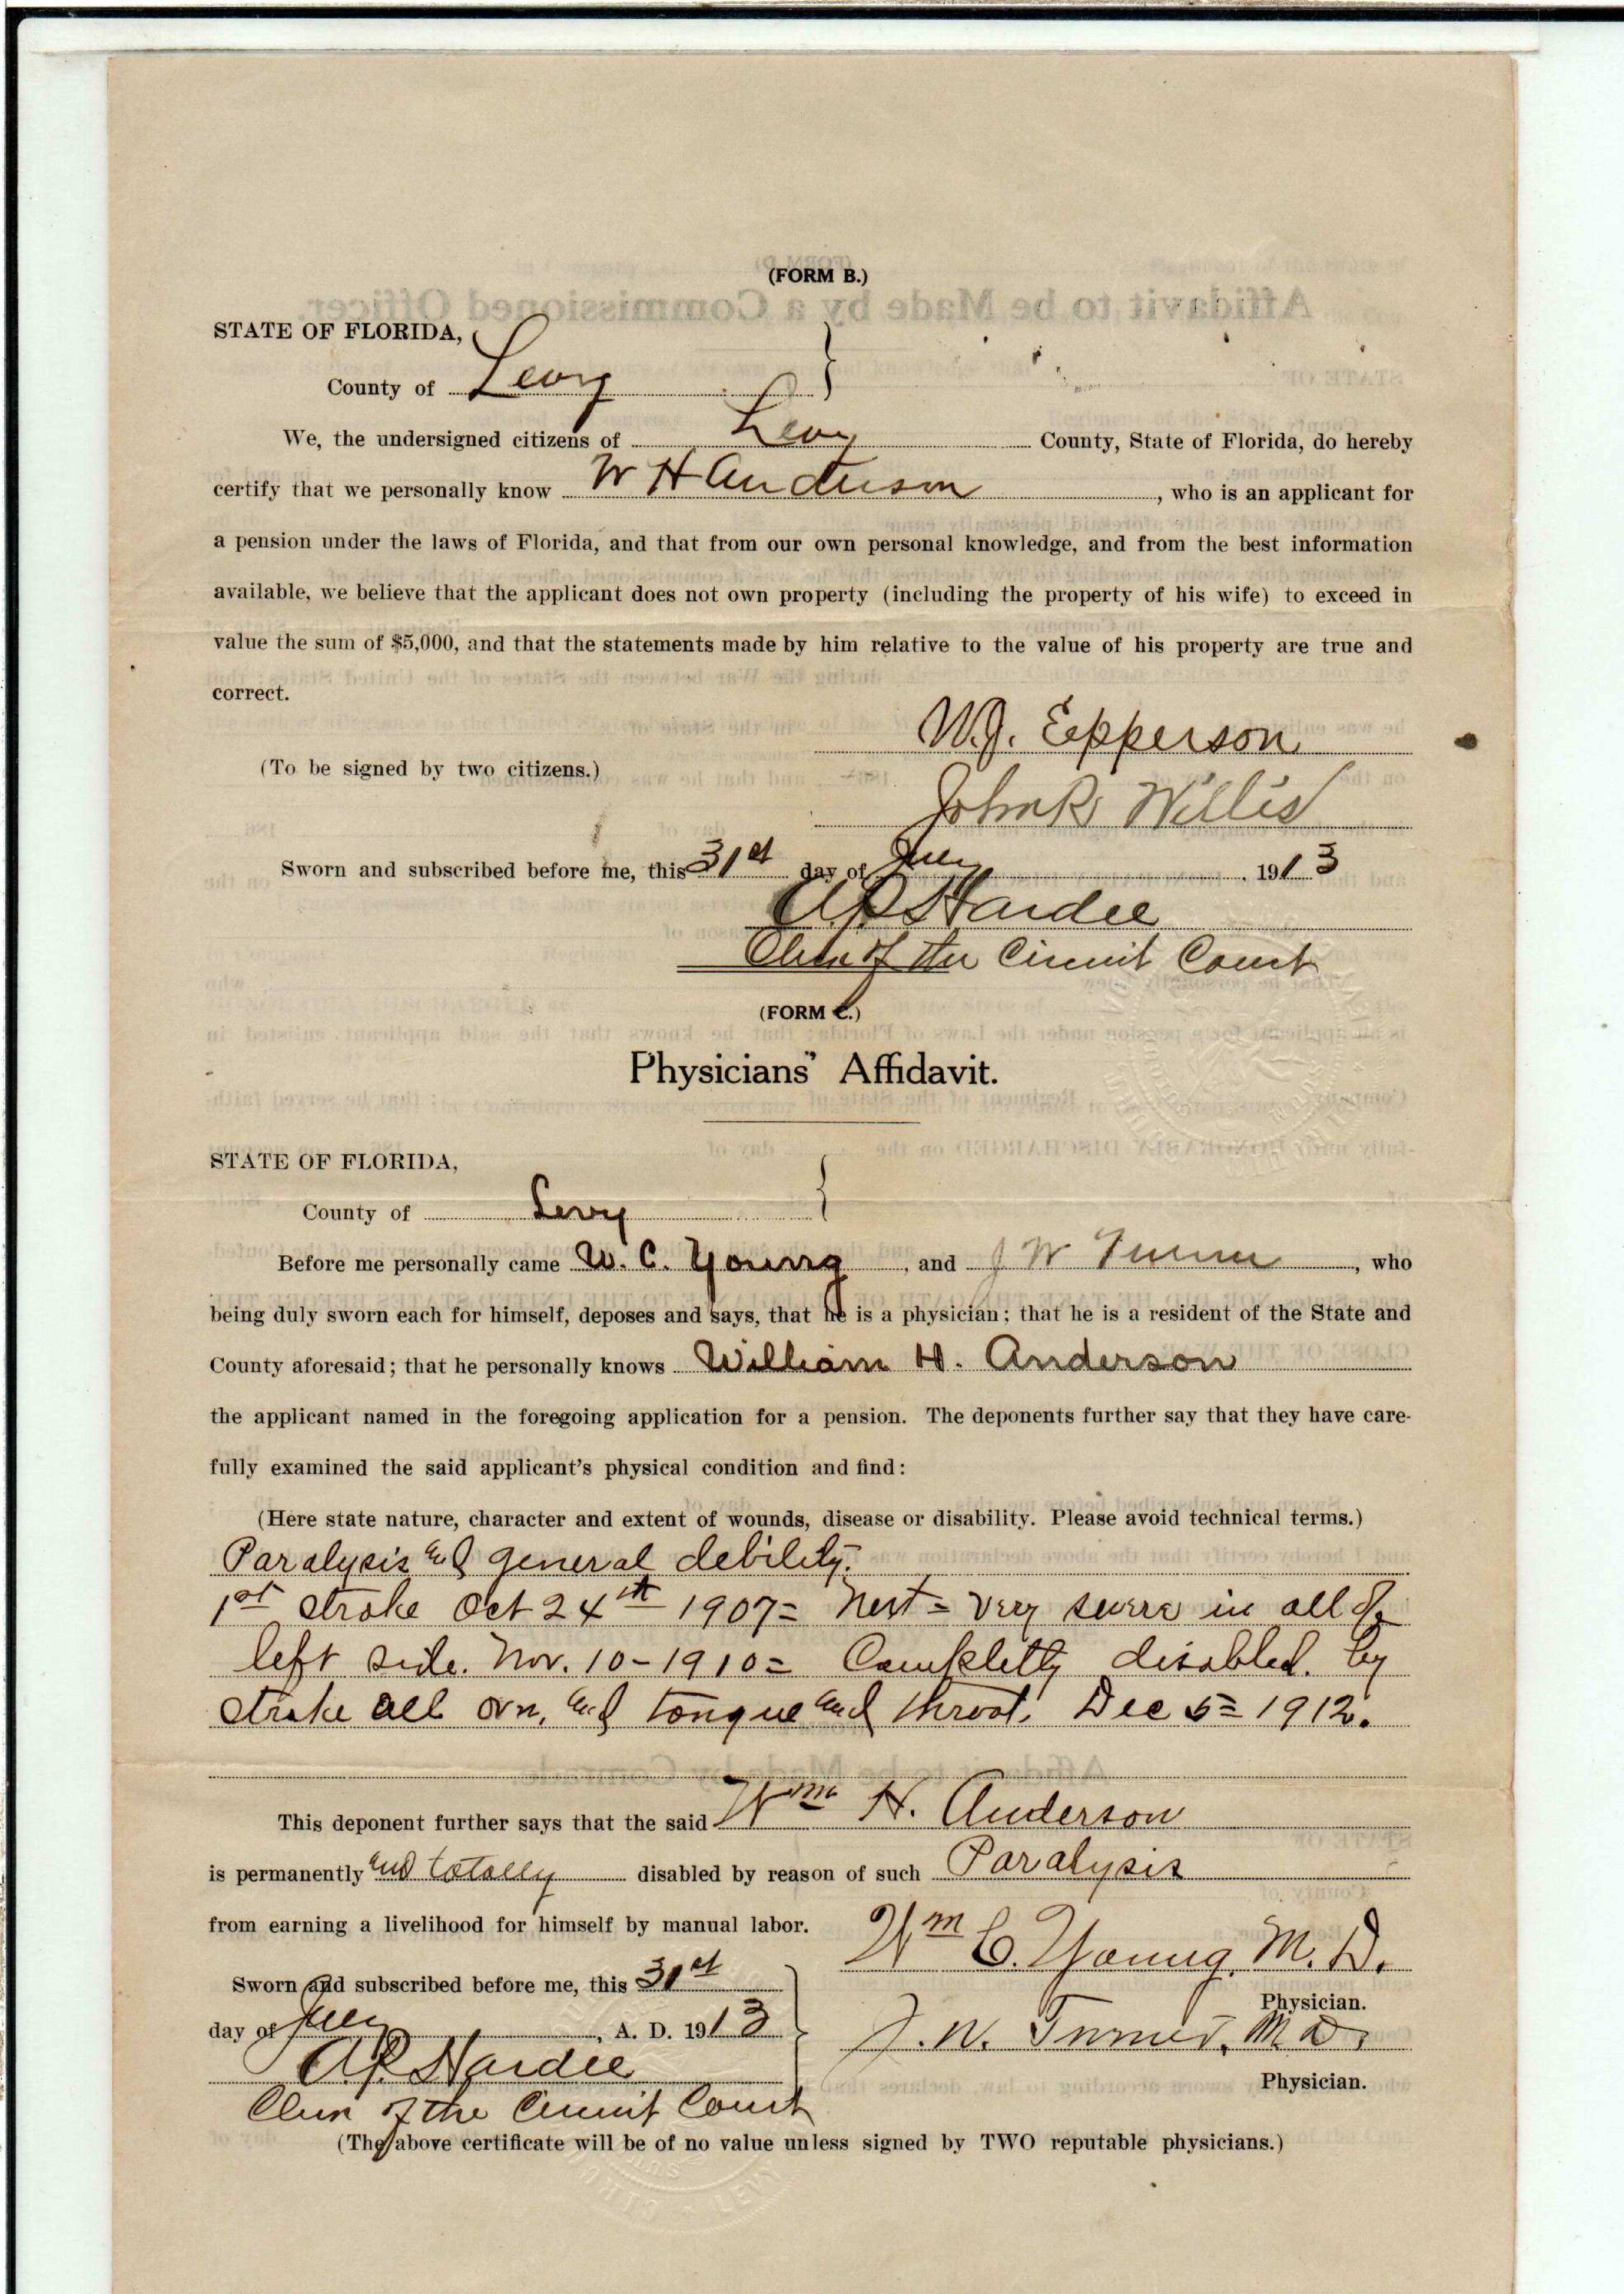 (FORM B.)
STATE OF FLORIDA,
County of Levy
We, the undersigned citizens of Levy County, State of Florida, do hereby
certify that we personally know W H Anderson, who is an applicant for
a pension under the laws of Florida, and that from our own personal knowledge, and from the best information
available, we believe that the applicant does not own property (including the property of his wife) to exceed in
value the sum of $5,000, and that the statements made by him relative to the value of his property are true and
correct.
W.J. Epperson
(To be signed by two citizens.)
John R Willis
Sworn and subscribed before me, this 31st day of July 1913
A.P. Hardee
Clerk of the Circuit Court
(FORM C.)
Physicians' Affidavit.
STATE OF FLORIDA,
County of Levy
Before me personally came W. C. Young, and J W Turner, who
being duly sworn each for himself, deposes and says, that he is a physician; that he is a resident of the State and
County aforesaid; that he personally knows William H. Anderson
the applicant named in the foregoing application for a pension. The deponents further say that they have care-
fully examined the said applicant's physical condition and find:
(Here state nature, character and extent of wounds, disease or disability. Please avoid technical terms.)
Paralysis and general debility.
1st stroke Oct 24th 1907= Next= very severe in all of
left side. Nov. 10-1910= Completly disabled. by
stroke all over, and tongue and throat. Dec 5= 1912.
This deponent further says that the said Wm H. Anderson
is permanently and totally disabled by reason of such Paralysis
from earning a livelihood for himself by manual labor.
Wm C. Young, M. D.
Physician.
Sworn and subscribed before me, this 31st
day of July, A. D. 1913
J. W. Turner, M D.
Physician.
A.P. Hardee
Clerk of the Circuit Court
(The above certificate will be of no value unless signed by TWO reputable physicians.)